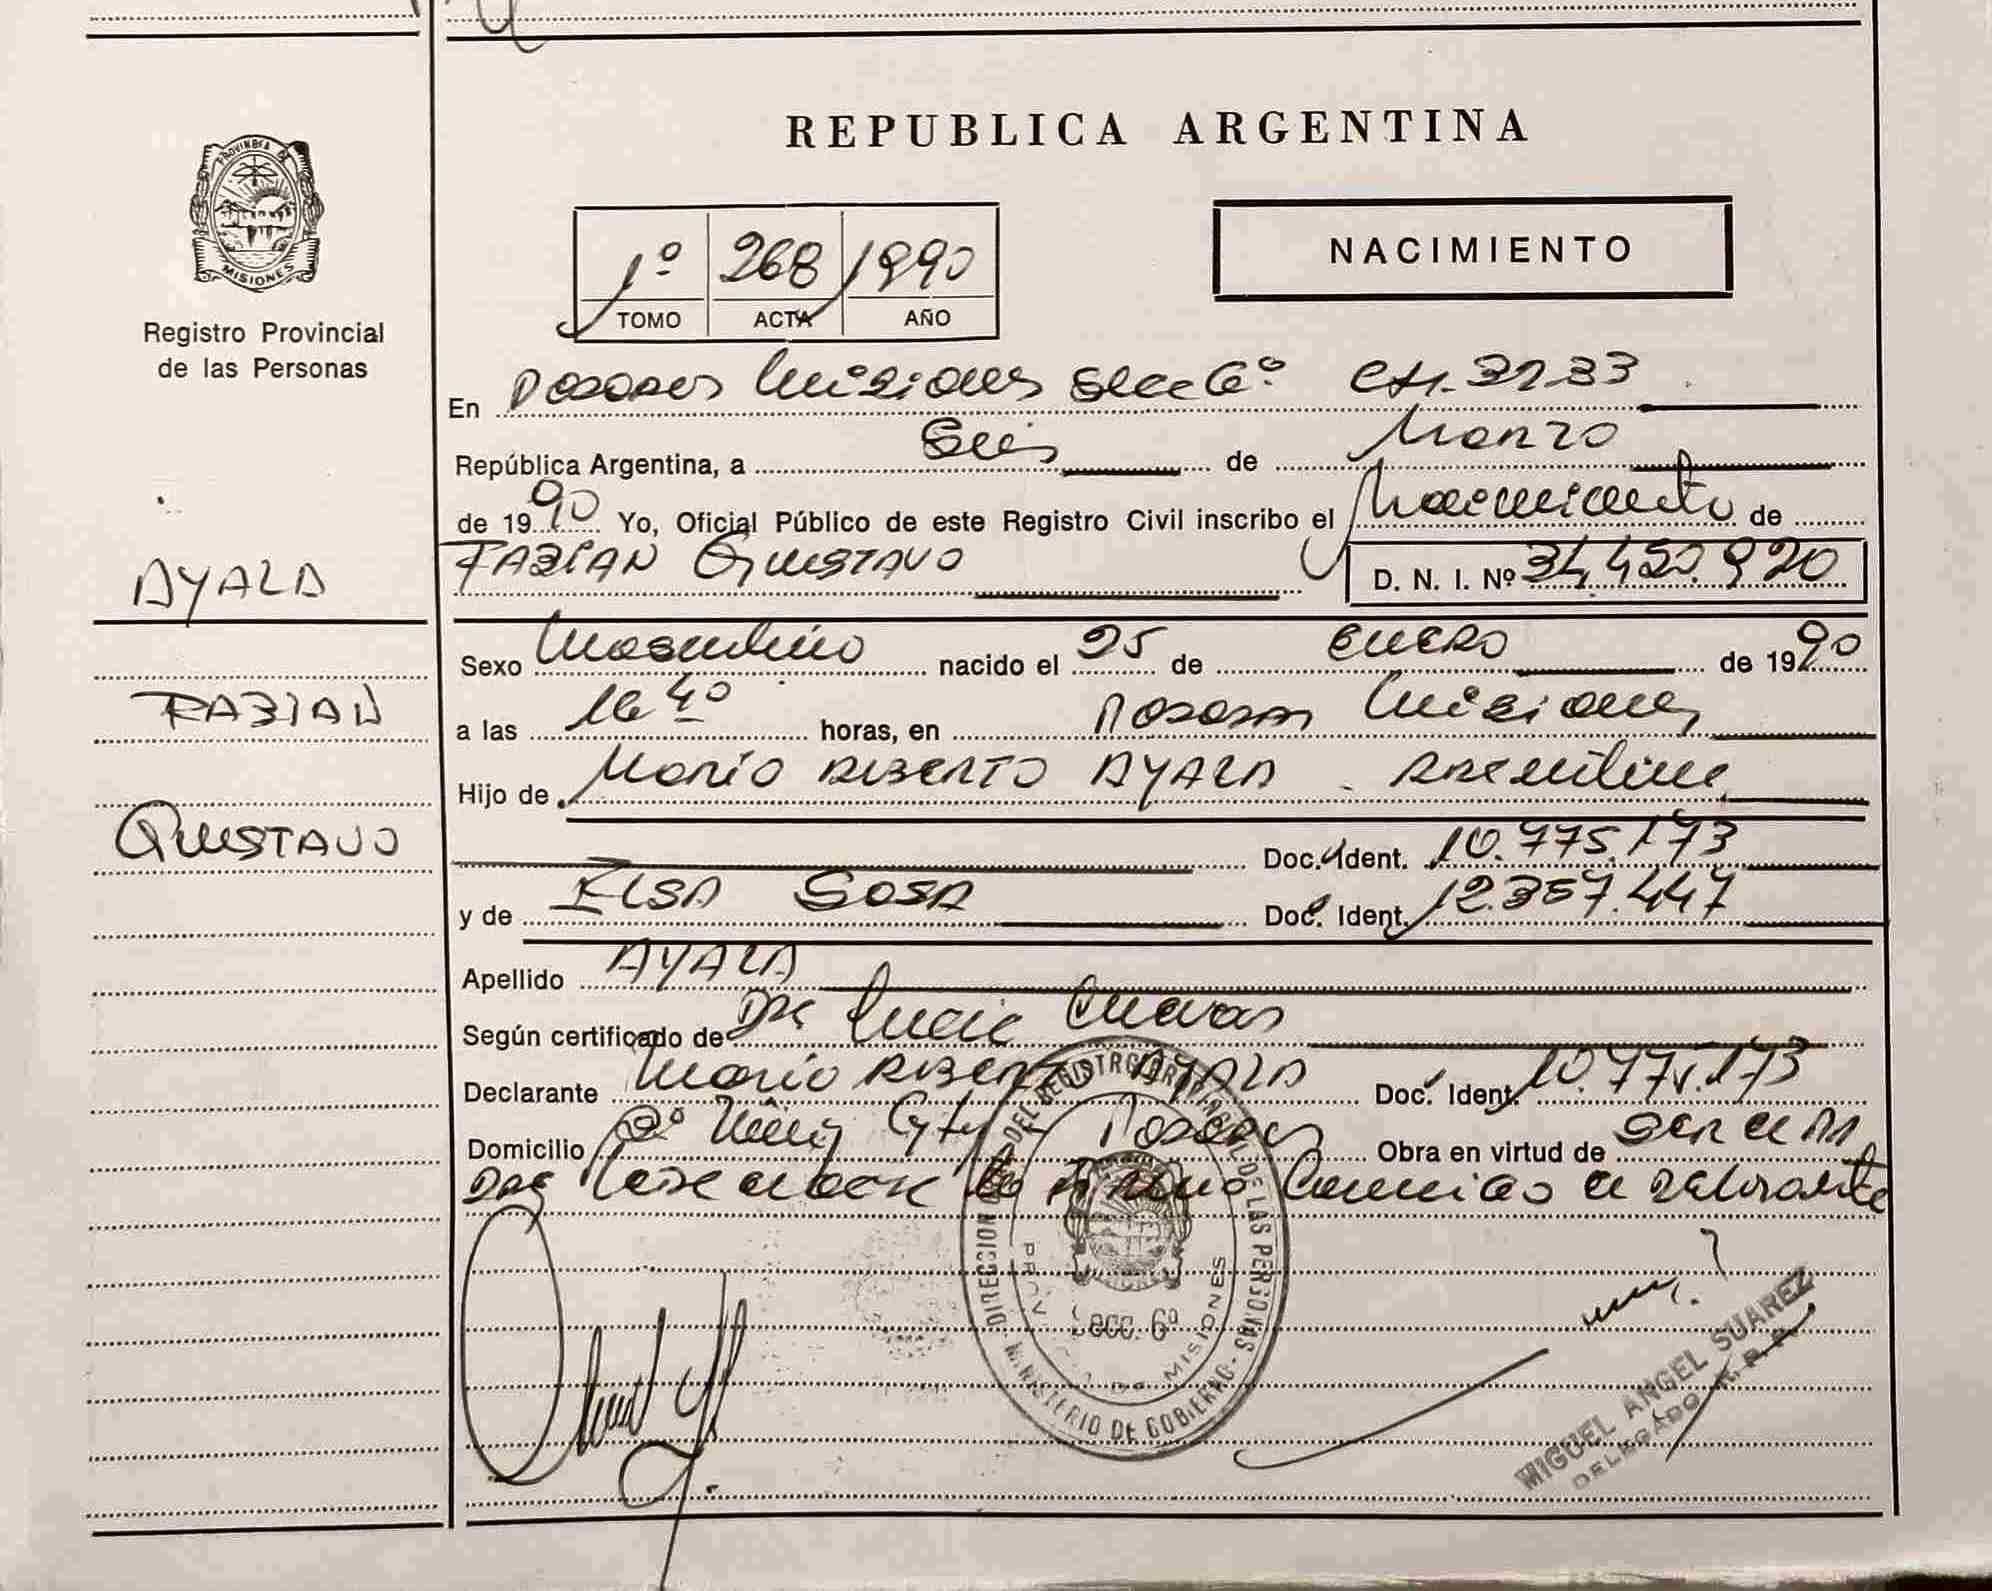 REPUBLICA ARGENTINA
PROVINCIA DE
MISIONES
Registro Provincial
de las Personas
NACIMIENTO
1º 268 1990
TOMO ACTA AÑO
En Posadas Misiones Secc 6º
República Argentina, a Seis de Marzo
de 1990 Yo, Oficial Público de este Registro Civil inscribo el Nacimiento de
FABIAN GUSTAVO D. N. I. Nº 34.450.920
AYALA
Sexo Masculino nacido el 25 de ENERO de 1990
FABIAN
a las 16 4º horas, en Posadas Misiones
Hijo de Mario ALBERTO AYALA Argentino
GUSTAVO
Doc. Ident. 10.775.173
y de ELSA SOSA Doc. Ident. 12.357.447
Apellido AYALA
Según certificado de Dra Cuevas
Declarante Mario ALBERTO AYALA Doc. Ident. 10.775.173
Domicilio Posadas Obra en virtud de
DIRECCION DEL REGISTRO PROVINCIAL DE LAS PERSONAS
MINISTERIO DE GOBIERNO
Secc. 6º
MISIONES
MIGUEL ANGEL SUAREZ
DELEGADO R. P. P.